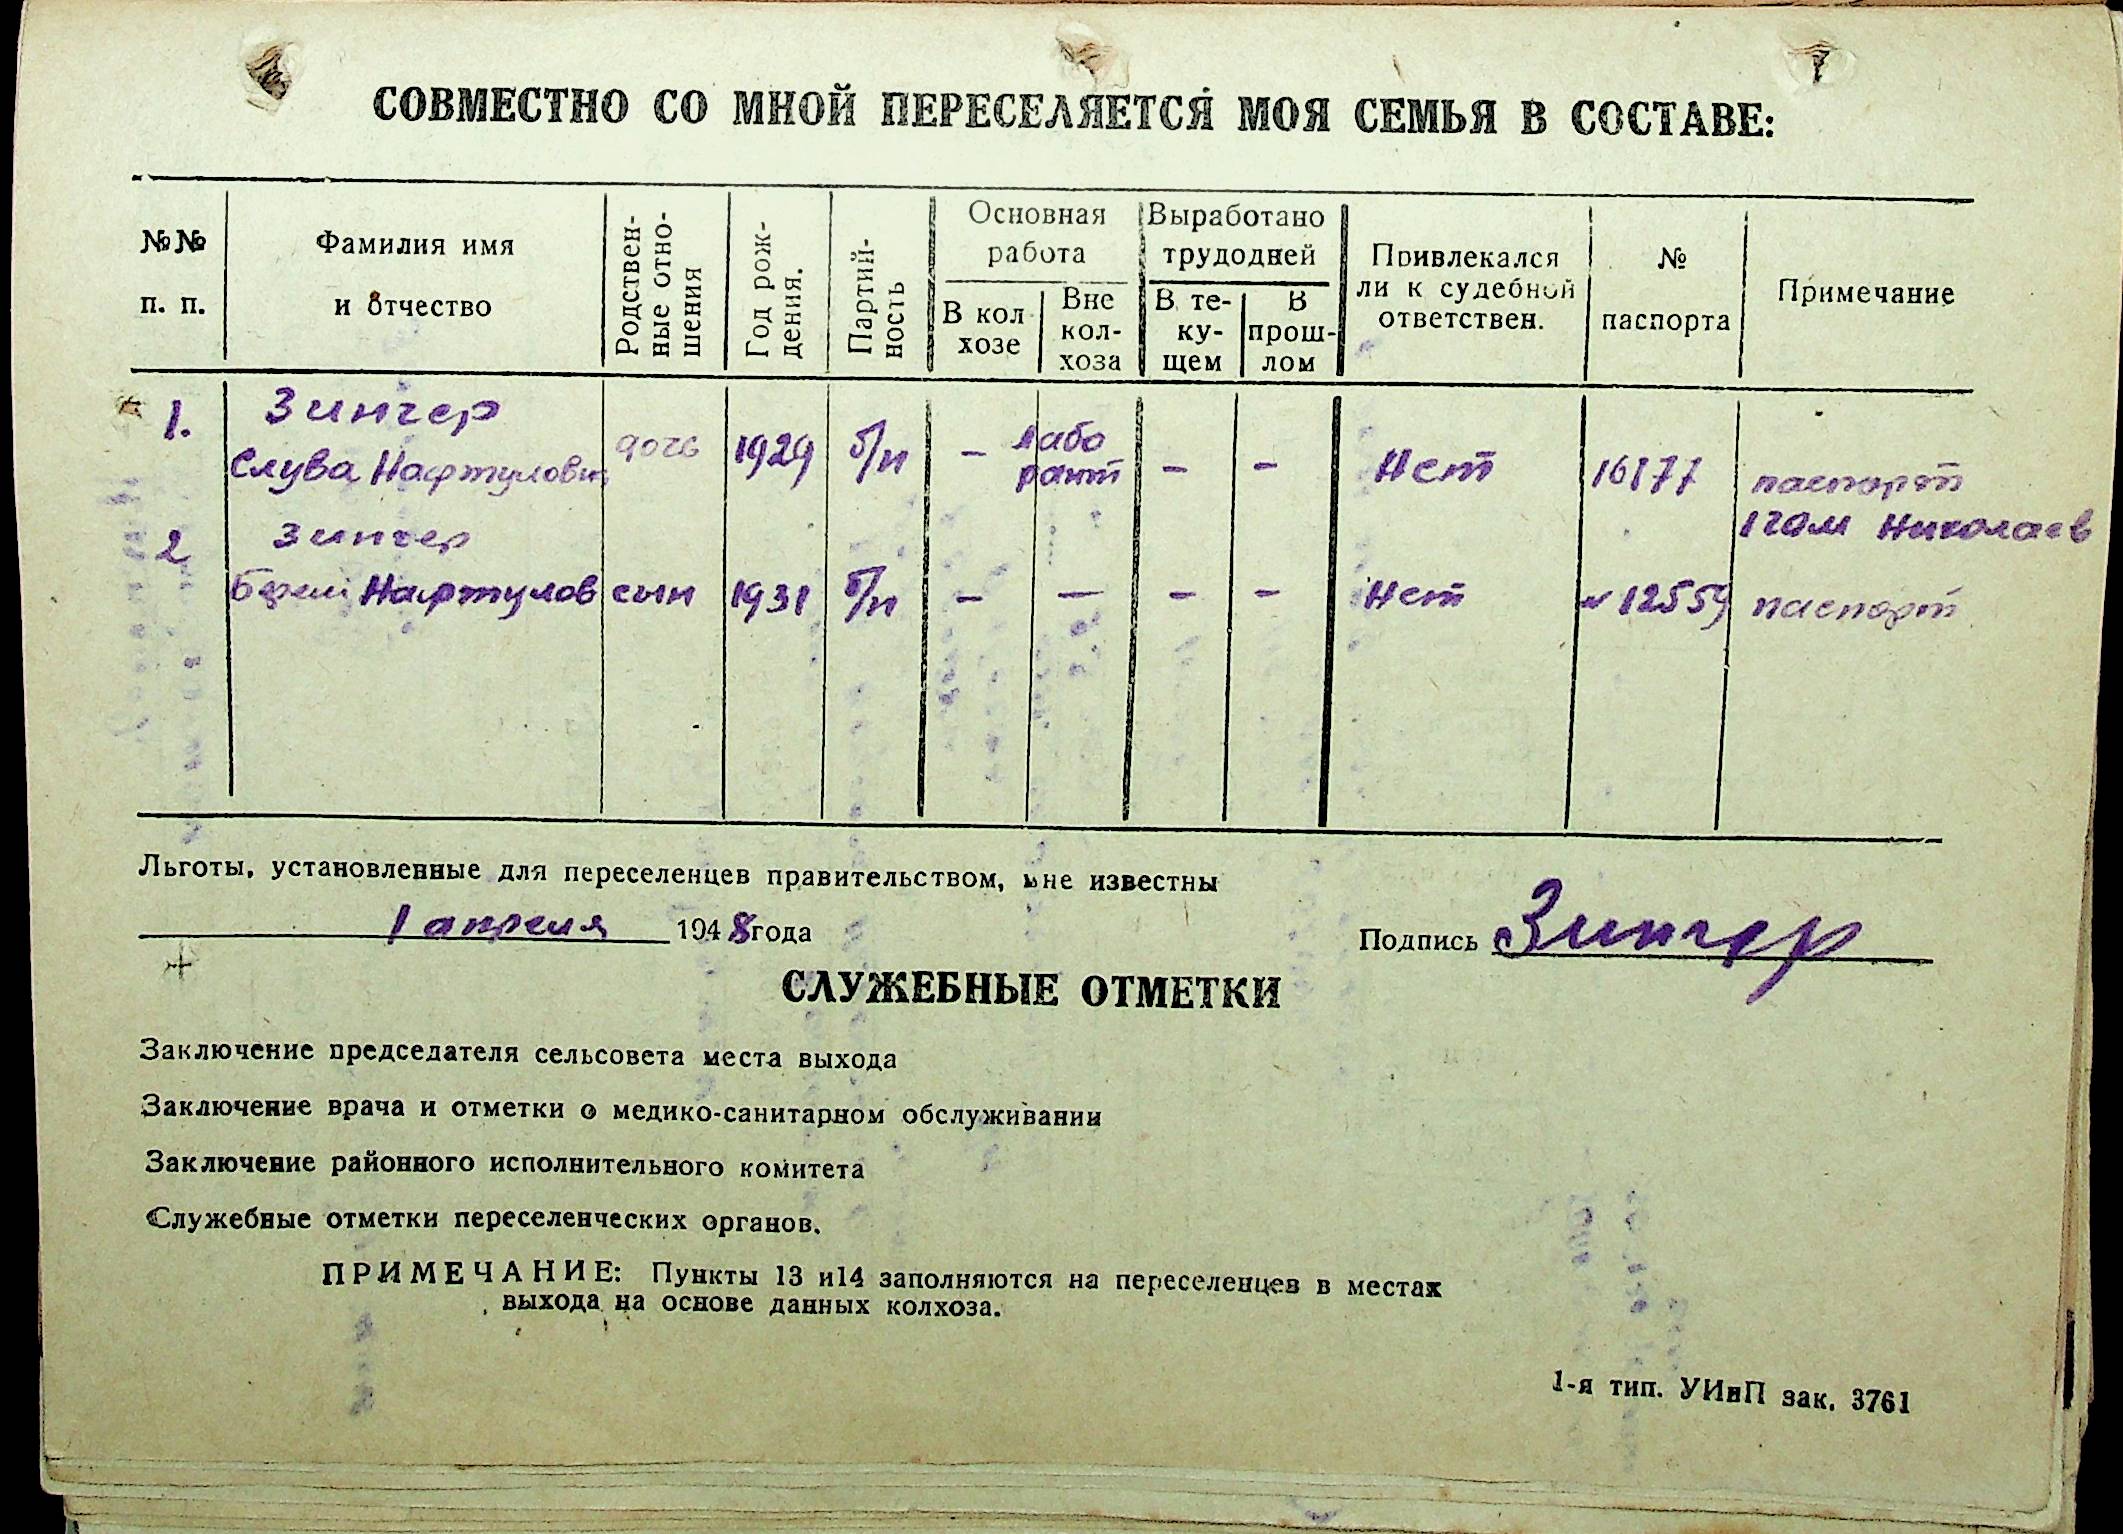 СОВМЕСТНО СО МНОЙ ПЕРЕСЕЛЯЕТСЯ МОЯ СЕМЬЯ В СОСТАВЕ:
№№ п. п.
Фамилия имя и отчество
Родствен-ные отно-шения
Год рож-дения.
Партий-ность
Основная работа
В кол хозе
Вне кол-хоза
Выработано трудодней
В те-ку-щем
В прош-лом
Привлекался ли к судебной ответствен.
№ паспорта
Примечание
1. Зингер
Слува Нафтулови дочь 1929 б/п - лабо рант - - Нет 16177 паспорт
1 гом Николаев
2 Зингер
Нафтулов сын 1931 б/п - - - - Нет №12559 паспорт
Льготы, установленные для переселенцев правительством, мне известны
1 апреля 1948 года
Подпись Зингер
СЛУЖЕБНЫЕ ОТМЕТКИ
Заключение председателя сельсовета места выхода
Заключение врача и отметки о медико-санитарном обслуживании
Заключение районного исполнительного комитета
Служебные отметки переселенческих органов.
ПРИМЕЧАНИЕ: Пункты 13 и14 заполняются на переселенцев в местах
выхода на основе данных колхоза.
1-я тип. УИиП зак. 3761